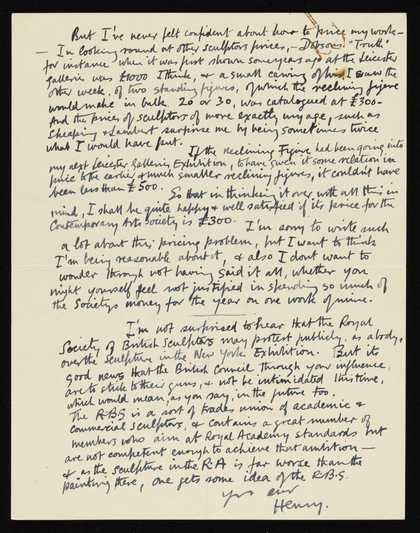 But I've never felt confident about how to price my work —
— In looking round at other sculptors prices, — Dobson's 'Truth'
for instance when it was first shown some years ago at the Leicester
Galleries was £1000 I think, & a small carving of his I saw the
other week, of two standing figures, of which the reclining figure
would make in bulk 20 or 30, was catalogued at £300 —
And the prices of sculptors of more exactly my age, such as
Skeaping & Lambert surprise me by being sometimes twice
what I would have put.
If the Reclining Figure had been going into
my next Leicester Galleries Exhibition, to have given it some relation in
price to the earlier & much smaller reclining figures, it couldn't have
been less than £500.
So that in thinking it over with all this in
mind, I shall be quite happy & well satisfied if its price for the
Contemporary Arts Society is £300.
I'm sorry to write such
a lot about this pricing problem, but I want to think
I'm being reasonable about it, & also I dont want to
wonder through not having said it all, whether you
might yourself feel not justified in spending so much of
the Societys money for the year on one work of mine.
I'm not surprised to hear that the Royal
Society of British Sculptors may protest publicly, as a body,
over the sculpture in the New York Exhibition. But its
good news that the British Council through your influence,
are to stick to their guns, & not be intimidated this time,
which would mean, as you say, in the future too.
The R.B.S is a sort of trades union of academic &
commercial sculptors, & contains a great number of
members who aim at Royal Academy standards but
are not competent enough to achieve that ambition —
& as the sculpture in the R.A is far worse than the
painting there, one gets some idea of the R.B.S.
Yrs ever
Henry.